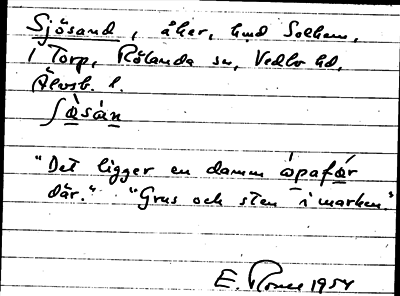 Sjösand, åker, hmd Solhem,
i Torp, Rölanda sn, Vedbo hd,
Älvsb. l.
ʃɑ̀sán
"Det ligger en damm òpafǫ́r
där." "Grus och sten i marken."
E. 1954